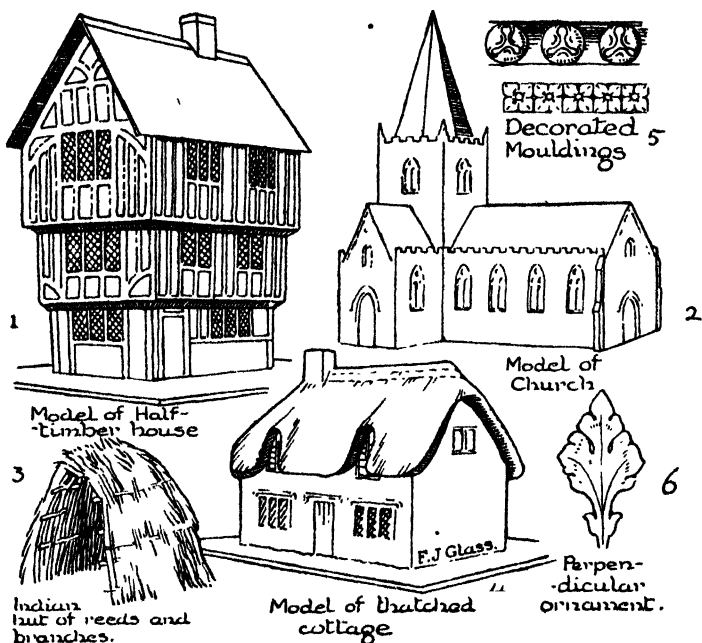 Decorated 5
Mouldings
1
2
Model of
Church
Model of Half-
-timber house
3
6
F.J Glass.
Perpen-
-dicular
ornament.
Indian
hut of reeds and
branches.
Model of thatched
cottage